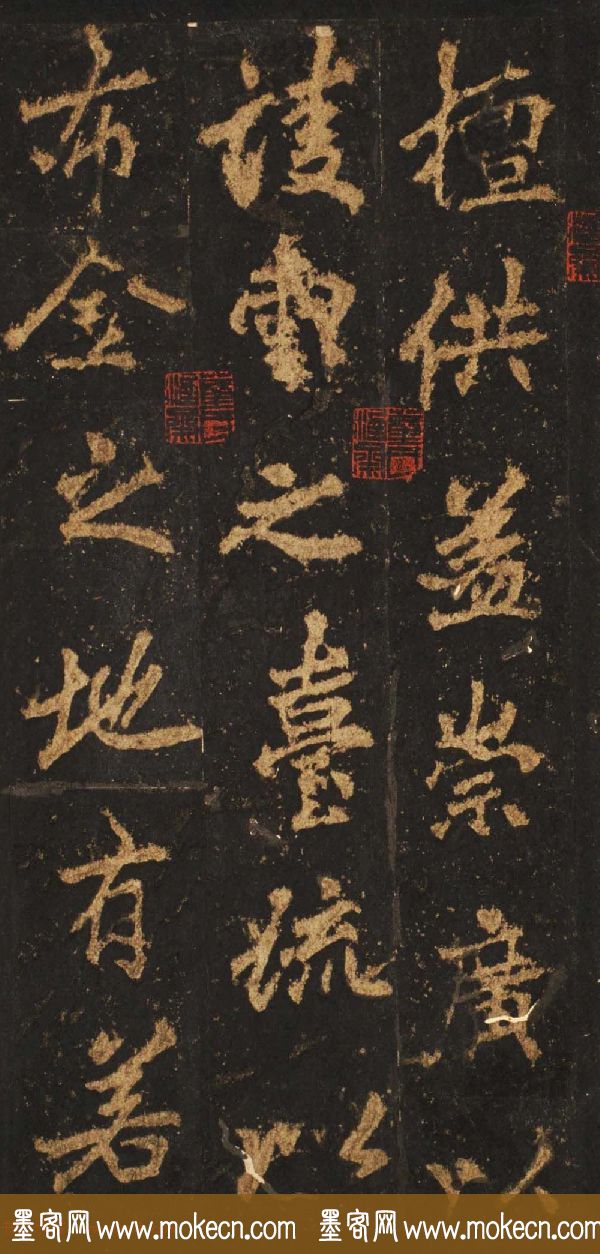 檀供盖崇廣以
凌雲之臺疏以
布金之地有若
墨客网 www.mokecn.com 墨客网 www.mokecn.com